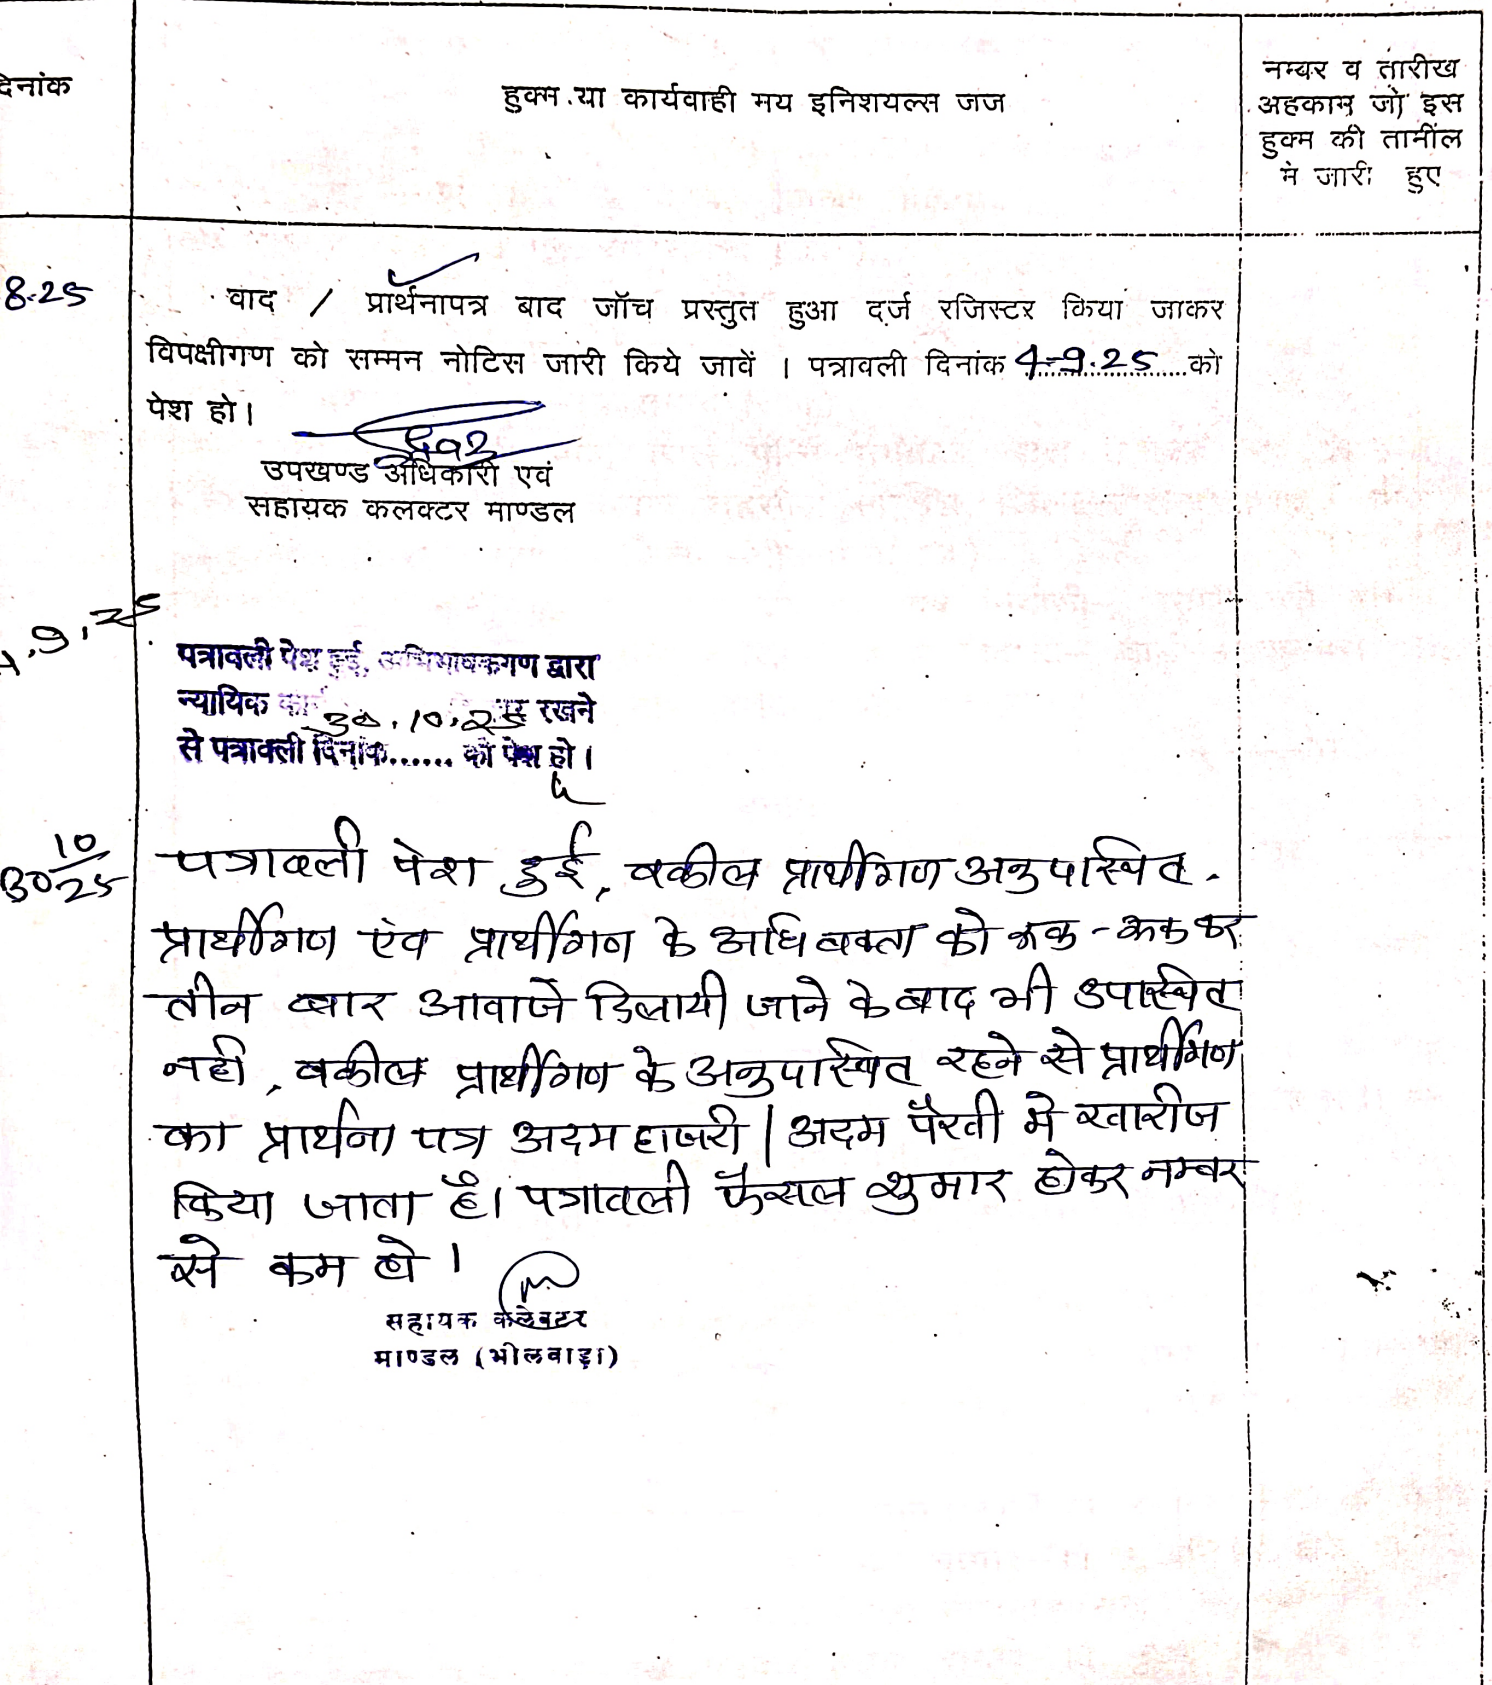 दिनांक
हुक्म या कार्यवाही मय इनिशयल्स जज
नम्बर व तारीख
अहकाम जो इस
हुक्म की तामील
में जारी हुए
8.25
वाद / प्रार्थनापत्र बाद जॉच प्रस्तुत हुआ दर्ज रजिस्टर किया जाकर
विपक्षीगण को सम्मन नोटिस जारी किये जावें । पत्रावली दिनांक 4.9.25 को
पेश हो।
उपखण्ड अधिकारी एवं
सहायक कलक्टर माण्डल
4.9.25
पत्रावली पेश हुई, अभिभाषकगण द्वारा
न्यायिक रखने
30.10.25
से पत्रावली दिनांक...... को पेश हो।
30 10/25
पत्रावली पेश हुई, वकील प्रार्थीगण अनुपस्थित.
प्रार्थीगण एंव प्रार्थीगण के अधिवक्ता को रूक-रूक कर
तीन बार आवाजे दिलायी जाने के बाद भी उपस्थित
नही, वकील प्रार्थीगण के अनुपस्थित रहने से प्रार्थीगण
का प्रार्थना पत्र अदम हाजरी / अदम पैरवी मे खारीज
किया जाता है। पत्रावली फैसल शुमार होकर नम्बर
से कम हो।
सहायक कलेक्टर
माण्डल (भीलवाड़ा)